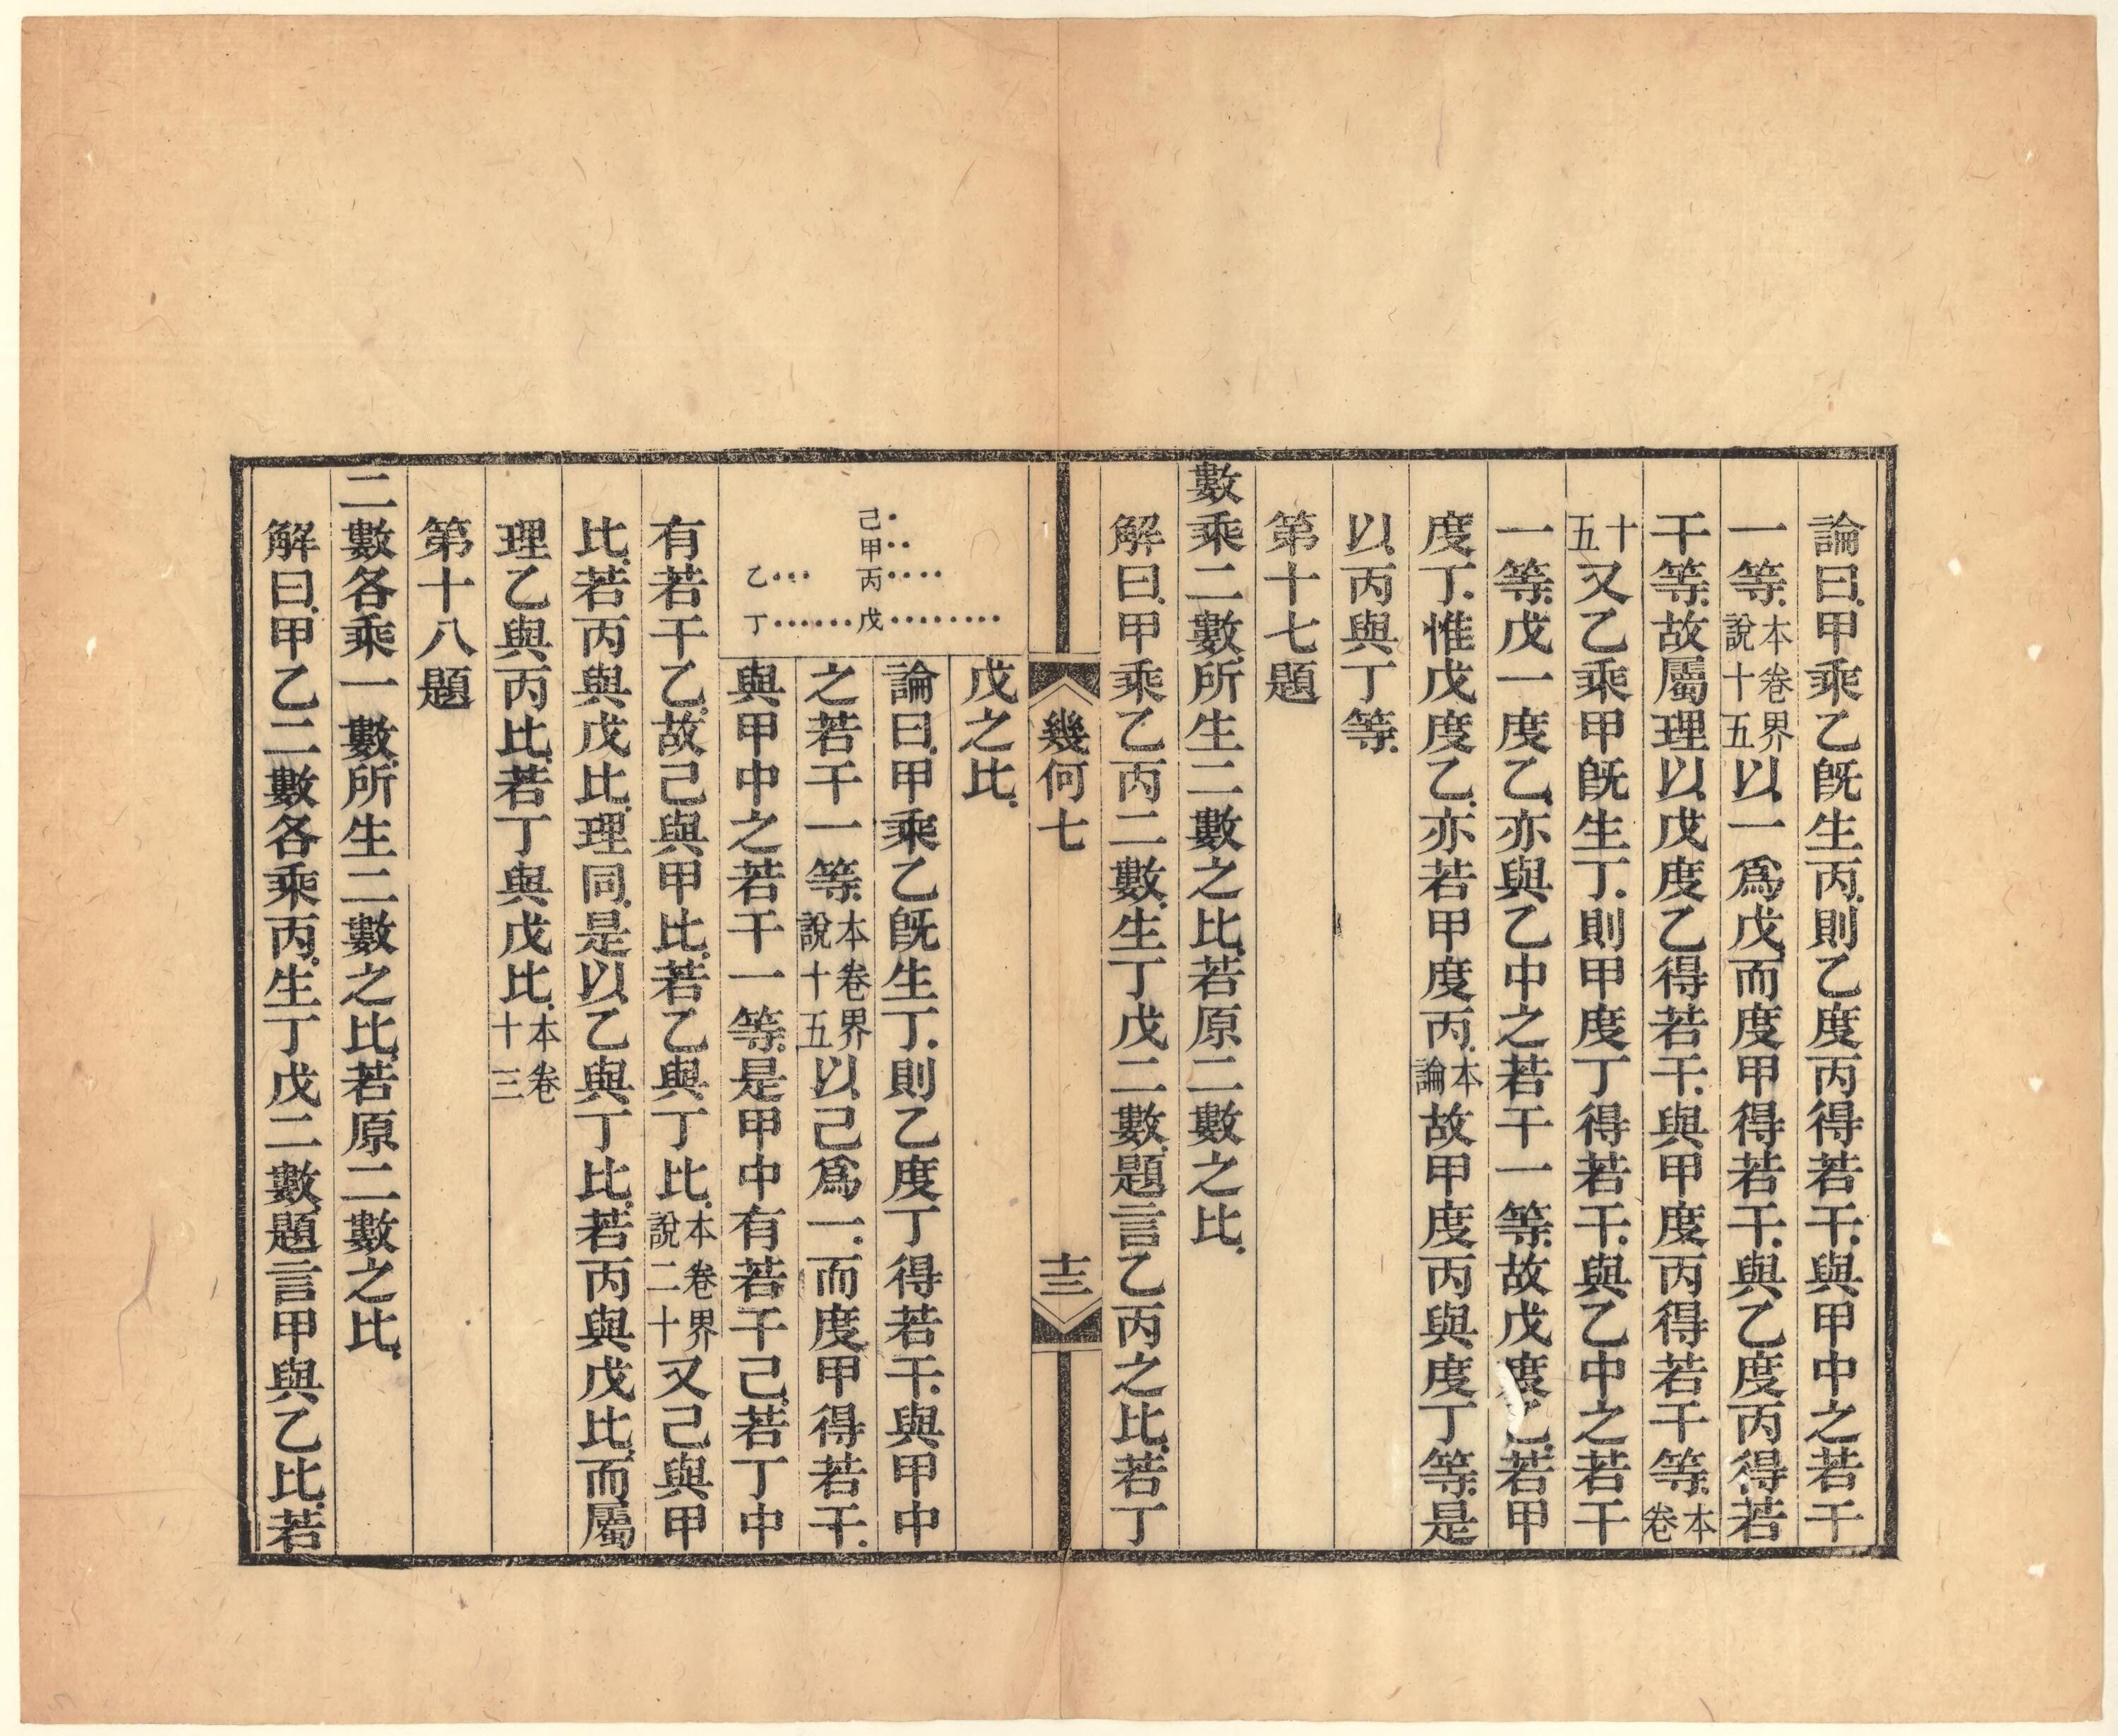 論曰.甲乘乙旣生丙.則乙度丙得若干.與甲中之若干
一等.本卷界說十五以一爲戊.而度甲得若干.與乙度丙得若
干等.故屬理以戊度乙得若干.與甲度丙得若干等.本卷
十五又乙乘甲旣生丁.則甲度丁得若干.與乙中之若干
一等.戊一度乙.亦與乙中之若干一等.故戊度乙.若甲
度丁.惟戊度乙.亦若甲度丙.本論故甲度丙與度丁等.是
以丙與丁等.
第十七題
數乘二數.所生二數之比.若原二數之比.
解曰.甲乘乙丙二數.生丁戊二數.題言乙丙之比.若丁
幾何七
十三
戊之比.
己
甲
乙 丙
丁 戊
論曰.甲乘乙旣生丁.則乙度丁得若干.與甲中
之若干一等.本卷界說十五以己爲一.而度甲得若干.
與甲中之若干一等.是甲中有若干己.若丁中
有若干乙.故己與甲比.若乙與丁比.本卷界說二十又己與甲
比.若丙與戊比.理同.是以乙與丁比.若丙與戊比.而屬
理乙與丙比.若丁與戊比.本卷十三
第十八題
二數各乘一數.所生二數之比.若原二數之比.
解曰.甲乙二數各乘丙.生丁戊二數.題言甲與乙比.若